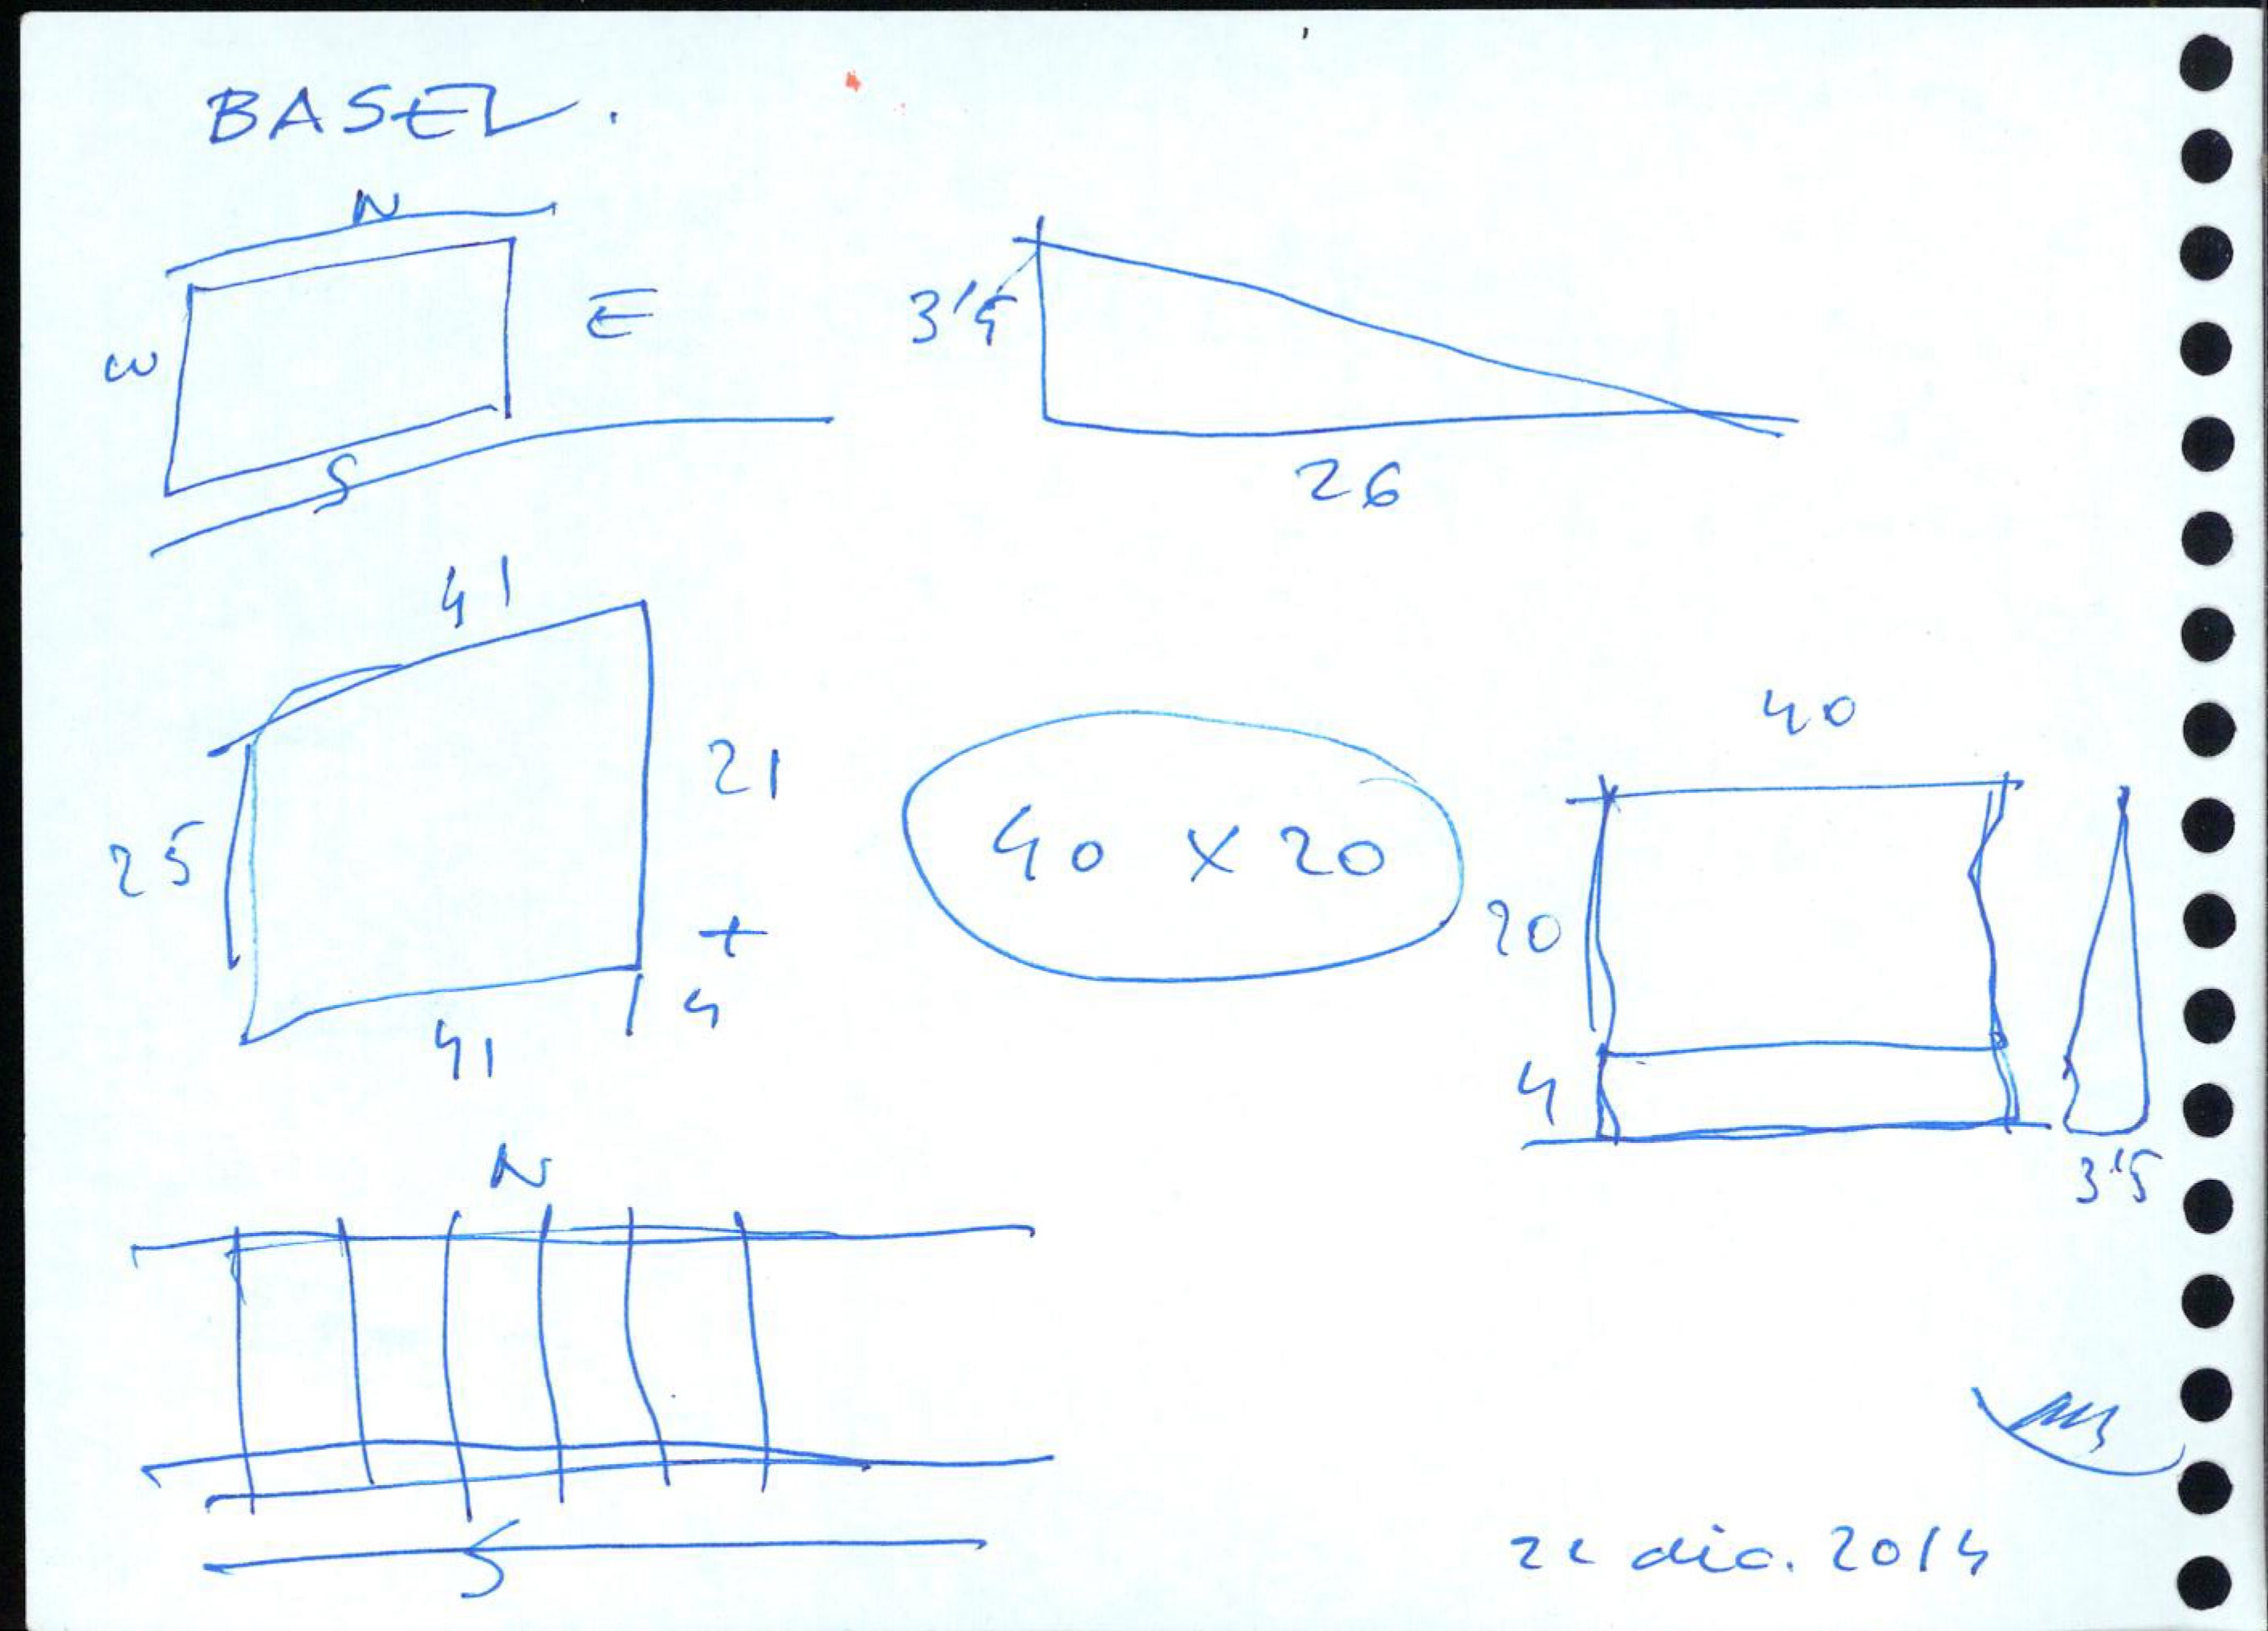 BASEL.
N
W
E
S
3'5
26
41
25
21
+
4
41
40 x 20
40
20
4
3'5
N
S
22 dic. 2014